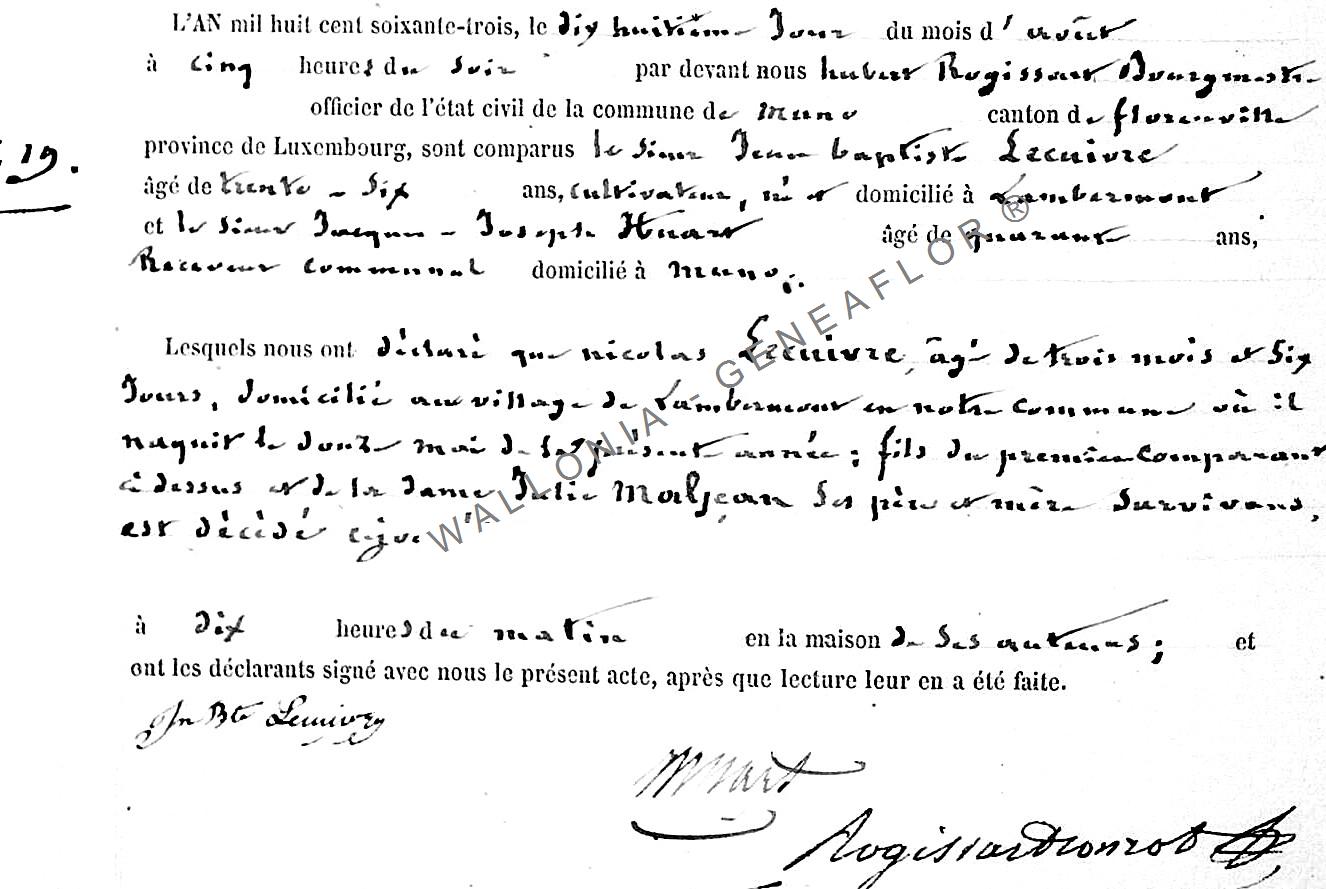 L'AN mil huit cent soixante-trois, le dix huitième Jour du mois d'août
à cinq heures du soir par devant nous hubert Rogissart Bourgmestre
officier de l'état civil de la commune de muno canton de florenville
19.
province de Luxembourg, sont comparus le sieur Jean baptiste Lecuivre
âgé de trente-six ans, cultivateur, né et domicilié à Lambermont
et le sieur Jacques-Joseph Huart âgé de quarante ans,
Receveur communal domicilié à muno;.
Lesquels nous ont déclaré que nicolas Lecuivre, âgé de trois mois et six
Jours, domicilié au village de Lambermont en notre commune où il
naquit le douze mai de la présente année; fils du premier comparant
ci dessus et de la dame Julie Maljean ses père et mère survivans,
est décédé cejour
à dix heures du matin en la maison de ses auteurs; et
ont les déclarants signé avec nous le présent acte, après que lecture leur en a été faite.
Jn Bte Lecuivre
Huart
Rogissart
WALLONIA - GENEAFLOR ®